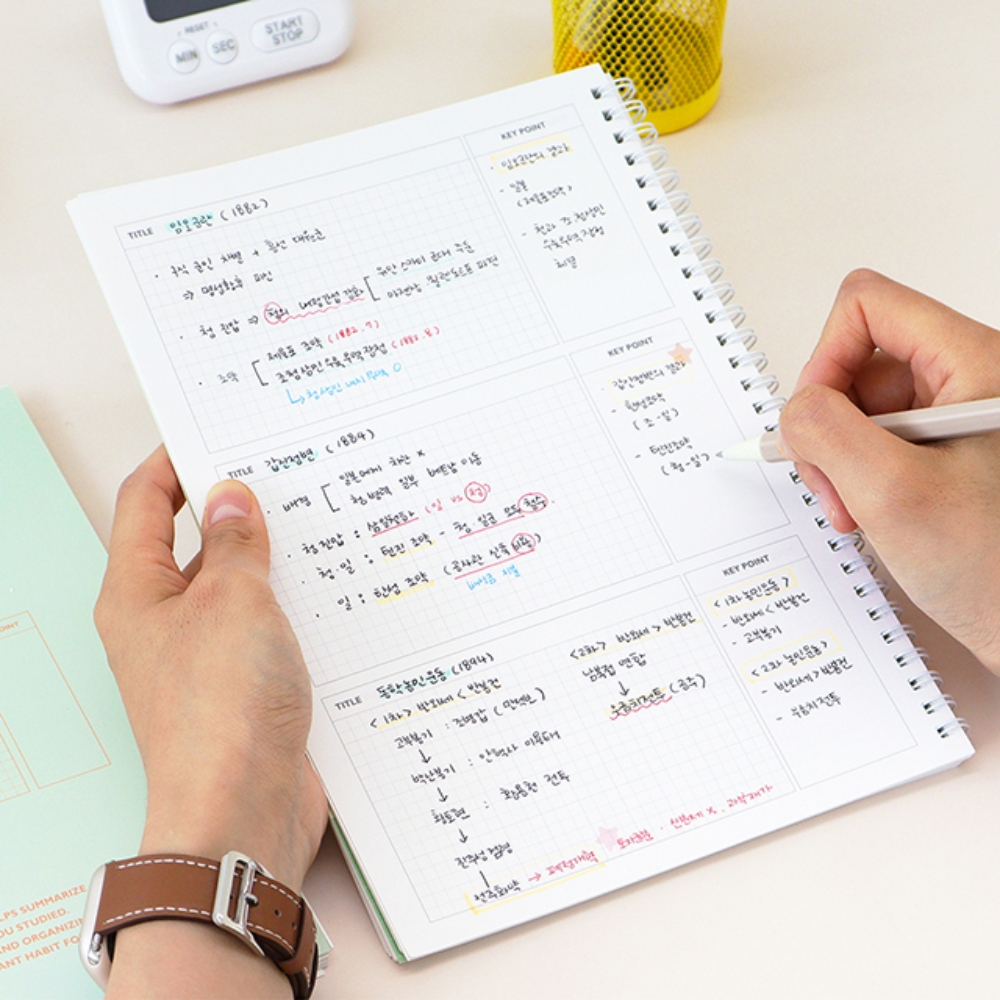 RESET
MIN SEC START STOP
TITLE 임오군란 (1882)
· 구식 군인 차별 + 흥선 대원군
⇒ 명성황후 피신
· 청 진압 ⇒ 청의 내정간섭
· 조약
제물포 조약 (1882. 7)
조청상민수륙무역장정 (1882. 8)
↳ 청 상인 내지 무역 O
KEY POINT
· 임오군란의 결과
- 일본
(제물포조약)
- 청과 조청상민
수륙무역장정
체결
TITLE 갑신정변 (1884)
· 배경
청 병력 일부 베트남 이동
· 청 진압 : 삼일천하 (일 vs 청)
· 청·일 : 텐진 조약 - 청·일군 모두 철수
· 일 : 한성 조약 (공사관 신축 비용)
배상금 지불
KEY POINT
· 갑신정변의 결과
- 한성조약
(조-일)
- 텐진조약
(청-일)
TITLE 동학농민운동 (1894)
<1차> 반외세 < 반봉건
고부봉기 : 조병갑 (만석보)
↓
백산봉기 : 안핵사 이용태
↓
황토현 : 황룡촌 전투
↓
전주성 점령
전주화약 → 폐정개혁
<2차> 반외세 > 반봉건
남북접 연합
↓
우금치전투 (공주)
KEY POINT
<1차농민운동>
- 반외세 < 반봉건
- 고부봉기
<2차 농민운동>
- 반외세 > 반봉건
- 우금치전투
POINT
LPS SUMMARIZE
OU STUDIED.
AND ORGANIZIN
ANT HABIT FO